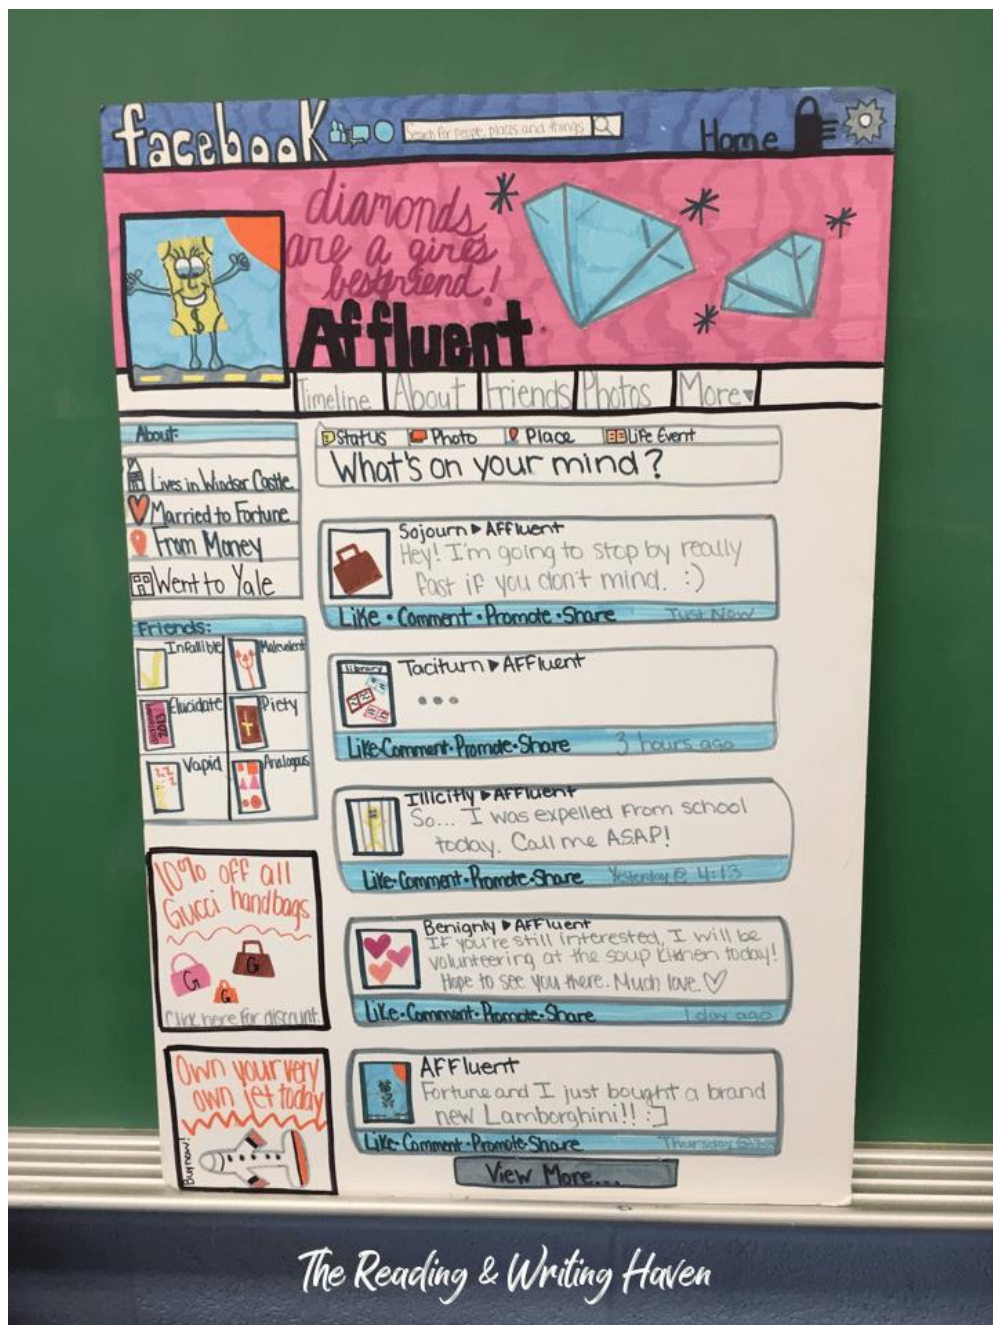 facebook
Search for people, places and things
Home
diamonds
are a girl's
bestfriend!
Affluent
$
Timeline
About
Friends
Photos
More
About:
Lives in Windsor Castle
Married to Fortune
From Money
Went to Yale
Friends:
Infallible
Malevolent
Elucidate
dictionary
2013
Piety
Vapid
Analogous
10% off all
Gucci handbags
G
G
G
Click here for discount.
Own your very
own jet today
Buy now!
Status
Photo
Place
Life Event
What's on your mind?
Sojourn ▶ AFFluent
Hey! I'm going to stop by really
fast if you don't mind. :)
Like • Comment • Promote • Share
Just Now
library
Taciturn ▶ AFFluent
•••
Like•Comment•Promote•Share
3 hours ago
Illicitly ▶ AFFluent
So... I was expelled from school
today. Call me ASAP!
Like•Comment•Promote•Share
Yesterday @ 4:13
Benignly ▶ AFFluent
If you're still interested, I will be
volunteering at the soup kitchen today!
Hope to see you there. Much love. ♡
Like•Comment•Promote•Share
1 day ago
AFFluent
Fortune and I just bought a brand
new Lamborghini!! :]
Like•Comment•Promote•Share
Thursday
View More...
The Reading & Writing Haven